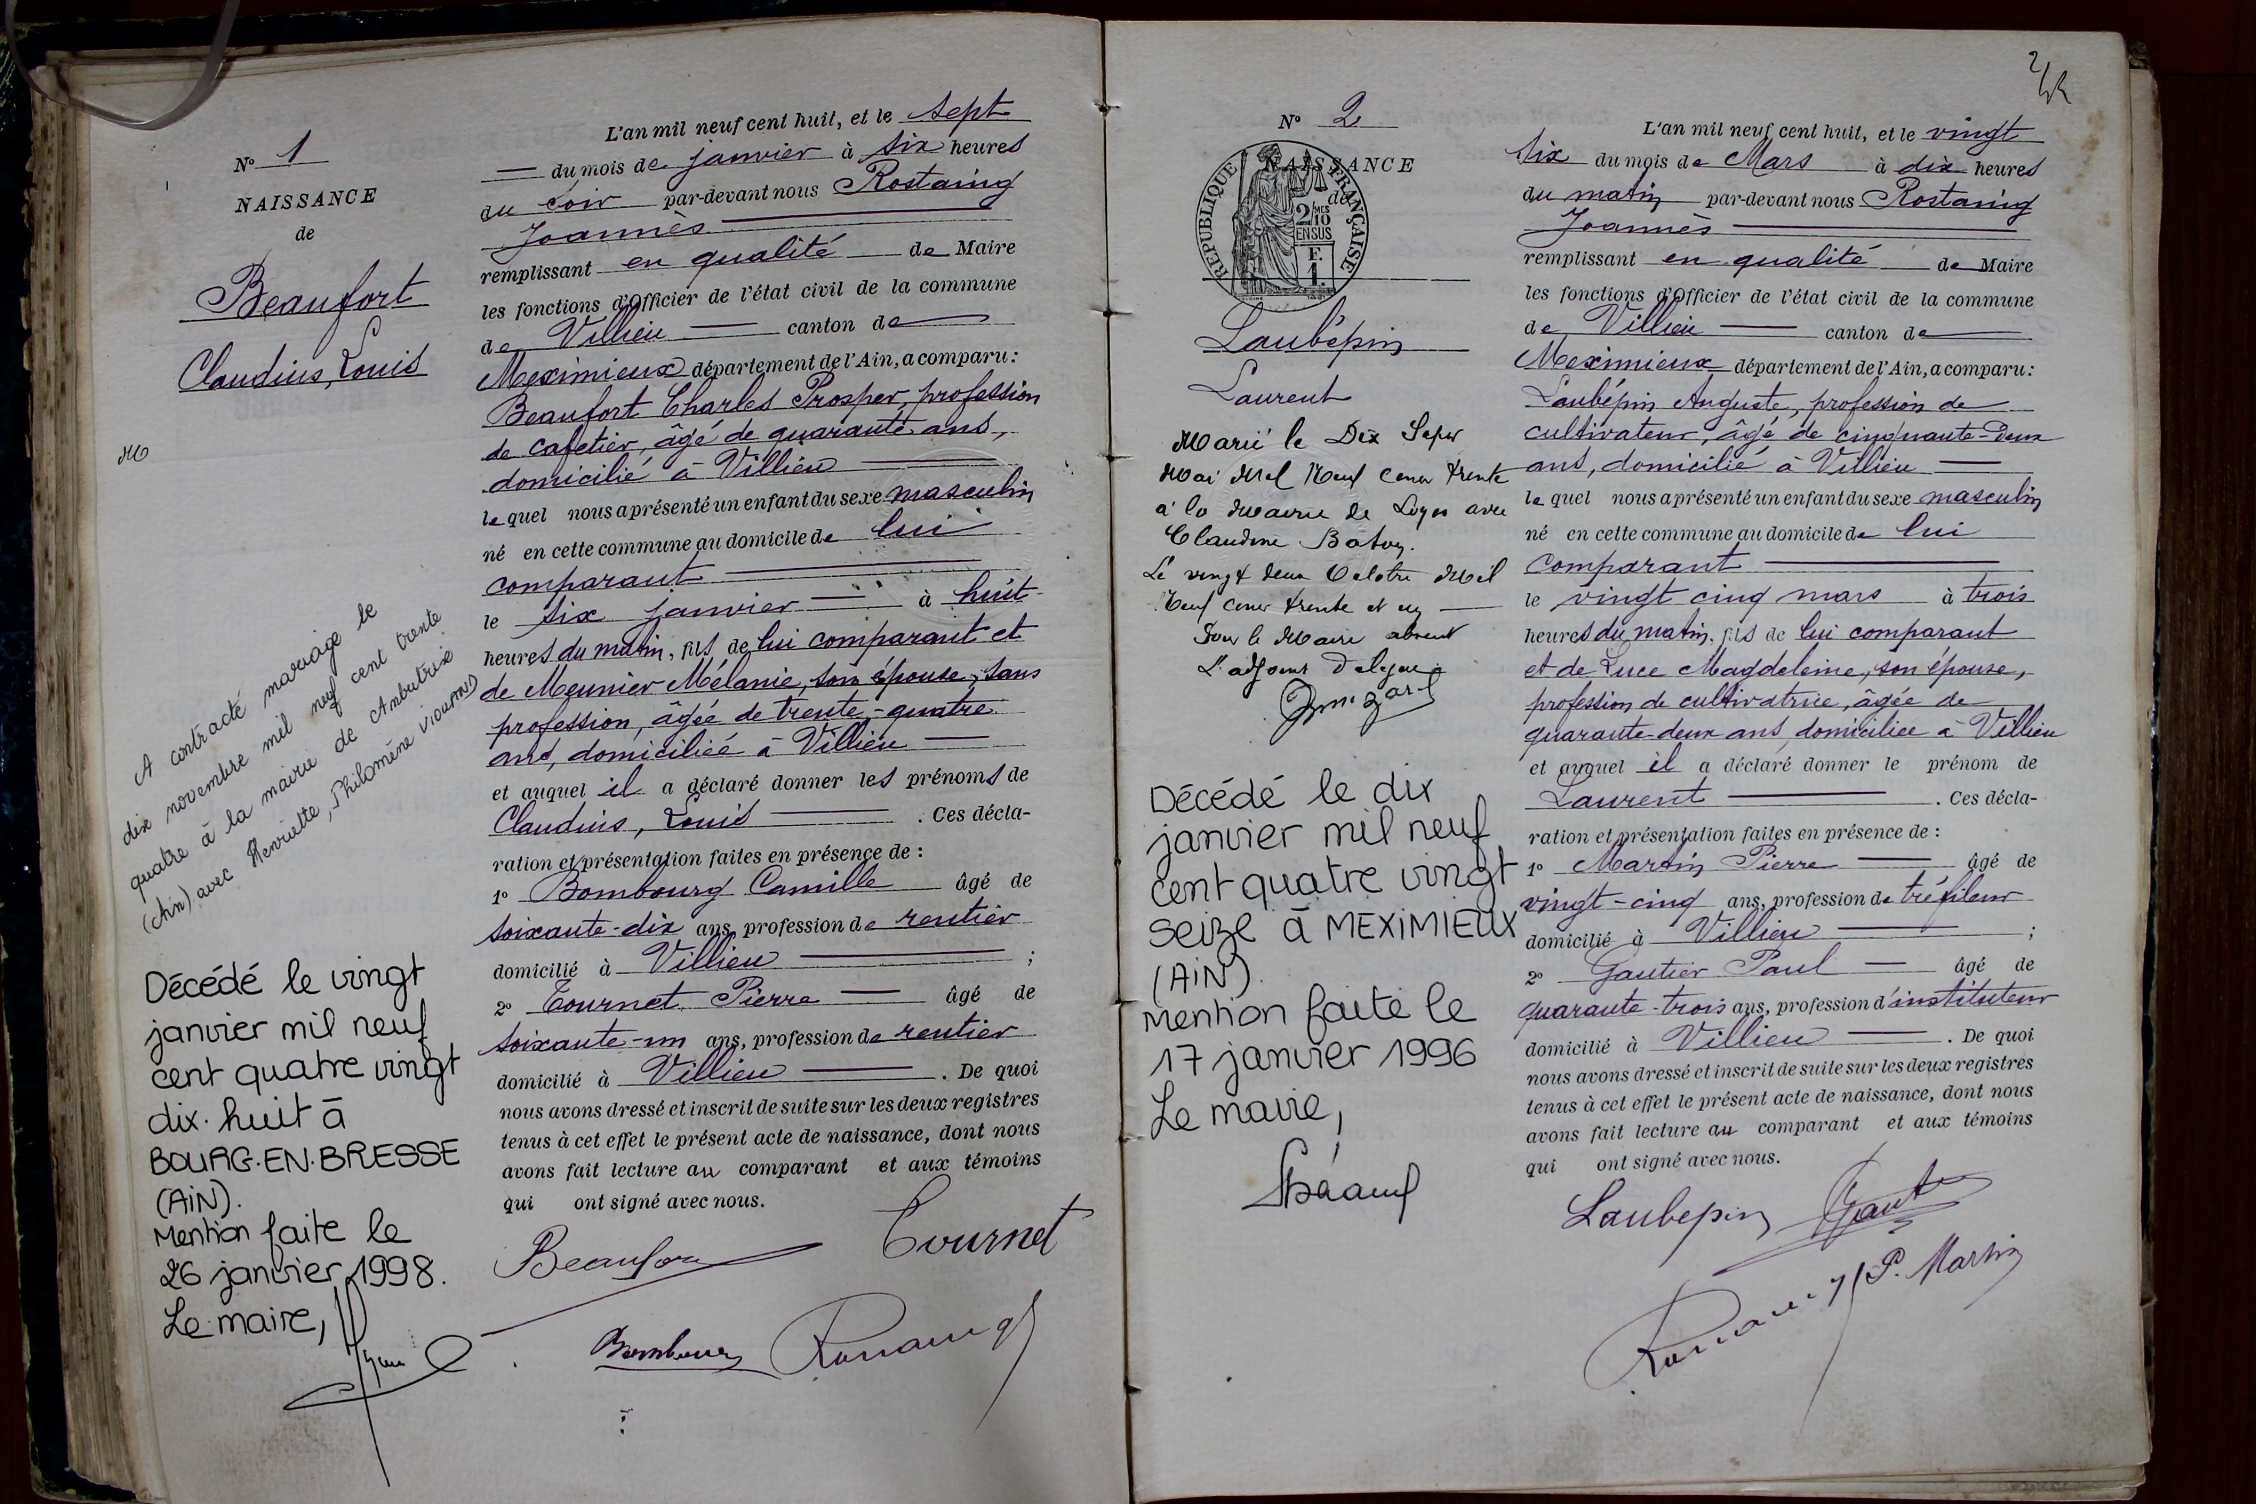 N° 1
NAISSANCE
de
Beaufort
Claudius, Louis
M
A contracté mariage le
dix novembre mil neuf cent trente
quatre à la mairie de Ambutrix
(Ain) avec Henriette, Philomène
Décédé le vingt
janvier mil neuf
cent quatre vingt
dix. huit à
BOURG.EN.BRESSE
(AIN).
Mention faite le
26 janvier 1998.
Le maire,
L'an mil neuf cent huit, et le sept
— du mois de janvier à six heures
du soir par-devant nous Rostaing
Joannès
remplissant en qualité de Maire
les fonctions d'Officier de l'état civil de la commune
de Villieu — canton de
Meximieux département de l'Ain, a comparu:
Beaufort Charles Prosper, profession
de cafetier, âgé de quarante ans,
domicilié à Villieu
lequel nous a présenté un enfant du sexe masculin
né en cette commune au domicile de lui
comparant
le six janvier — à huit
heures du matin, fils de lui comparant et
de Meunier Mélanie, son épouse, sans
profession, âgée de trente-quatre
ans, domiciliée à Villieu —
et auquel il a déclaré donner les prénoms de
Claudius, Louis . Ces décla-
ration et présentation faites en présence de :
1° Bombourg Camille âgé de
soixante-dix ans, profession de rentier
domicilié à Villieu ;
2° Tournet Pierre — âgé de
soixante-un ans, profession de rentier
domicilié à Villieu . De quoi
nous avons dressé et inscrit de suite sur les deux registres
tenus à cet effet le présent acte de naissance, dont nous
avons fait lecture au comparant et aux témoins
qui ont signé avec nous.
Beaufort Tournet
Bombourg Rostaing
2
N° 2
NAISSANCE
de
RÉPUBLIQUE FRANÇAISE
2/10 MES
EN SUS
F.
1.
Laubépin
Laurent
Marié le Dix Sept
Mai Mil Neuf Cent trente
à la Mairie de Loyes avec
Claudine
Le vingt deux Octobre Mil
Neuf Cent trente et un —
Pour le Maire absent
L'adjoint Délégué
Décédé le dix
janvier mil neuf
cent quatre vingt
seize à MEXIMIEUX
(AIN).
Mention faite le
17 janvier 1996
Le maire,
L'an mil neuf cent huit, et le vingt
six du mois de Mars à dix heures
du matin par-devant nous Rostaing
Joannès
remplissant en qualité de Maire
les fonctions d'Officier de l'état civil de la commune
de Villieu — canton de
Meximieux département de l'Ain, a comparu:
Laubépin Auguste, profession de
cultivateur, âgé de cinquante-deux
ans, domicilié à Villieu —
lequel nous a présenté un enfant du sexe masculin
né en cette commune au domicile de lui
comparant
le vingt cinq mars à trois
heures du matin, fils de lui comparant
et de Luce Magdeleine, son épouse,
profession de cultivatrice, âgée de
quarante-deux ans, domiciliée à Villieu
et auquel il a déclaré donner le prénom de
Laurent . Ces décla-
ration et présentation faites en présence de :
1° Martin Pierre — âgé de
vingt-cinq ans, profession de tréfileur
domicilié à Villieu ;
2° Gautier Paul — âgé de
quarante-trois ans, profession d'instituteur
domicilié à Villieu — . De quoi
nous avons dressé et inscrit de suite sur les deux registres
tenus à cet effet le présent acte de naissance, dont nous
avons fait lecture au comparant et aux témoins
qui ont signé avec nous.
Laubepin Gautier
Rostaing P. Martin